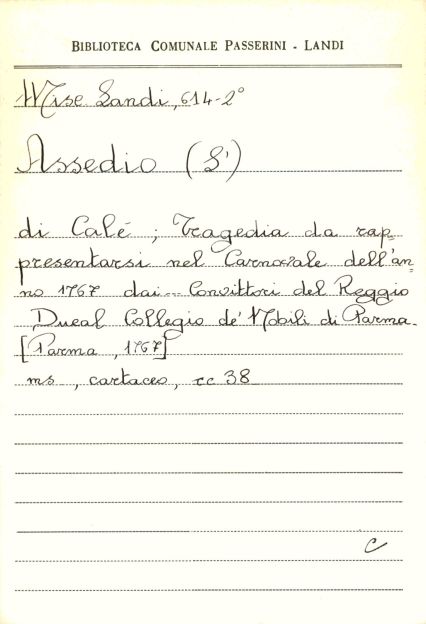 BIBLIOTECA COMUNALE PASSERINI - LANDI
Misc. Landi, 614-2°
Assedio (L')
di Calé ; Tragedia da rap-
presentarsi nel Carnovale dell'an-
no 1767 dai... Convittori del Reggio
Ducal Collegio de' Nobili di Parma.
[Parma, 1767]
ms, cartaceo, cc 38
C